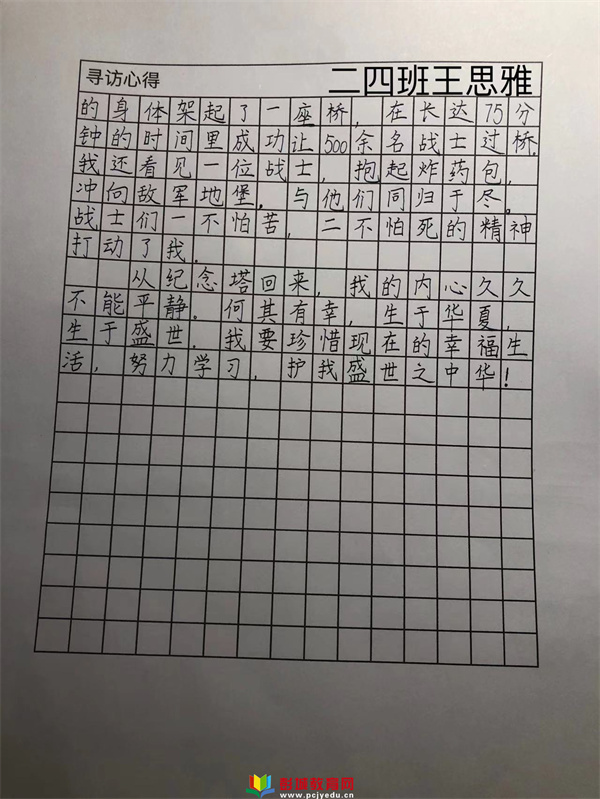 寻访心得
二四班王思雅
的身体架起了一座桥,在长达75分
钟的时间里成功让500余名战士过桥.
我还看见一位战士,抱起炸药包,
冲向敌军地堡.与他们同归于尽。
战士们一不怕苦,二不怕死的精神
打动了我.
从纪念塔回来,我的内心久久
不能平静。何其有幸,生于华夏,
生于盛世.我要珍惜现在的幸福生
活,努力学习,护我盛世之中华!
彭城教育网
www.pcjyedu.cn